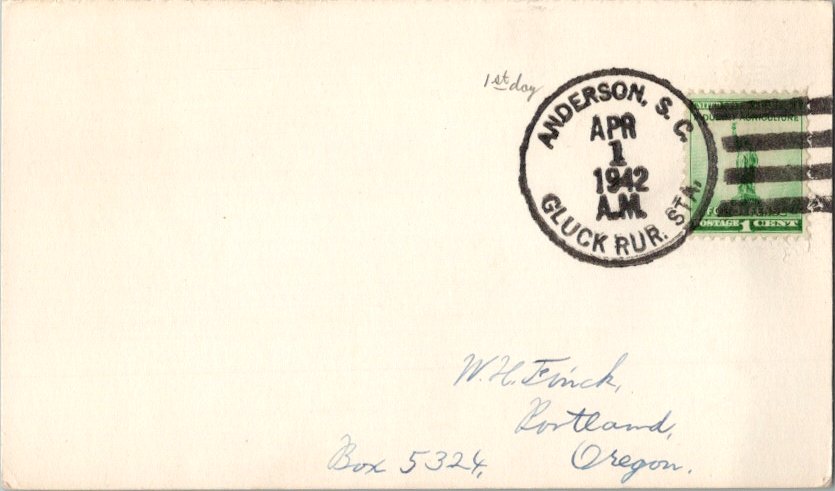 1st day
ANDERSON, S. C.
APR
1
1942
A.M.
GLUCK RUR. STA.
UNITED
AGRICULTURE
POSTAGE 1 CENT
W. H. Finck,
Portland,
Box 5324, Oregon.